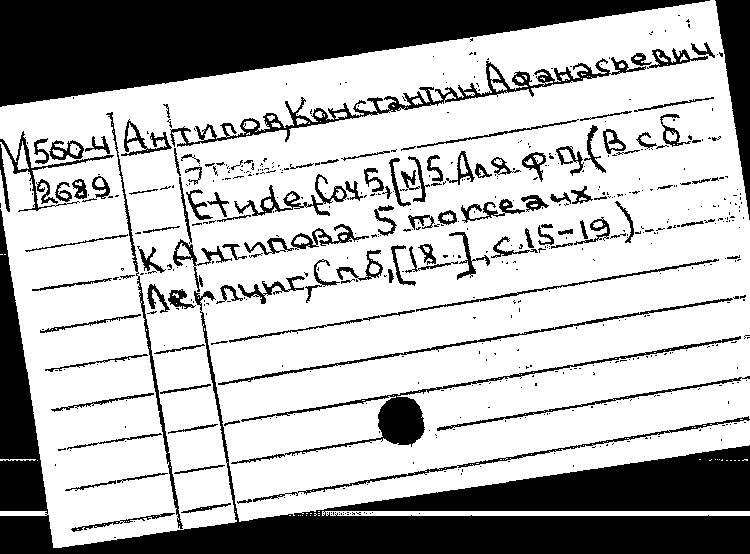 М560-4 Антипов, Константин Афанасьевич.
2689 Этюд.
Etude, Соч 5, [N] 5 Для ф.п, (В сб.
К. Антипова 5 morceaux
Лейпциг, Спб, [18..], с. 15-19)